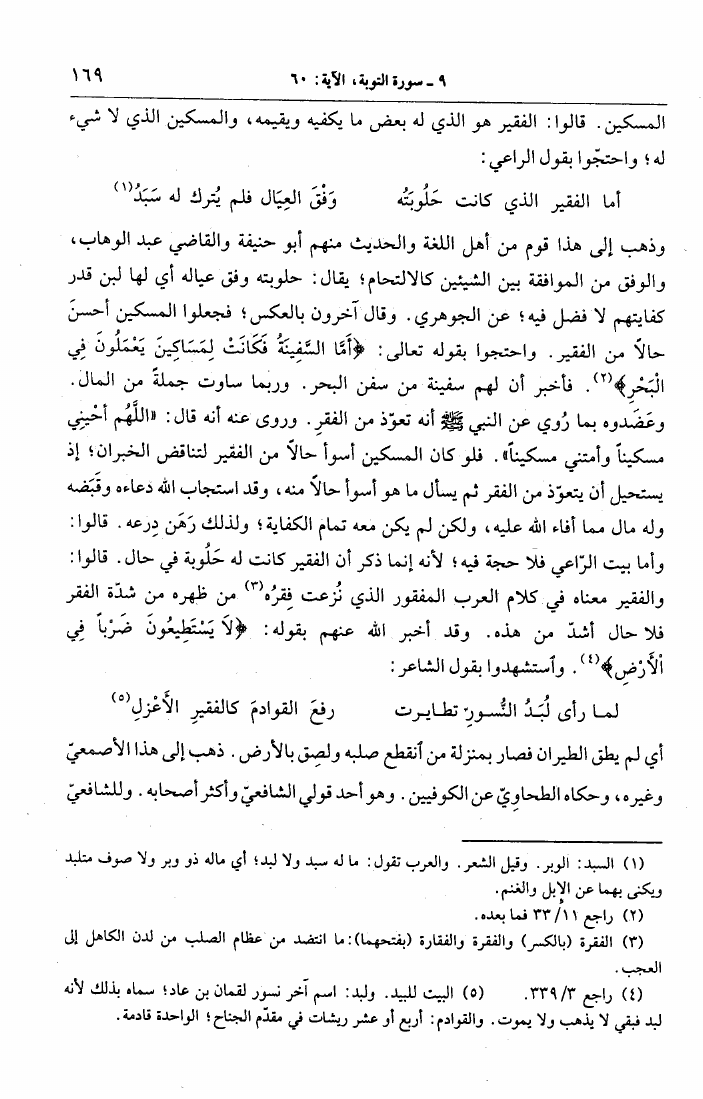 ٩ - سورة التوبة، الآية: ٦٠ ١٦٩
المسكين. قالوا: الفقير هو الذي له بعض ما يكفيه ويقيمه، والمسكين الذي لا شيء
له؛ واحتجّوا بقول الراعي:
أما الفقير الذي كانت حَلُوبَتُه وَفْقَ العِيَال فلم يُترك له سَبَدُ(١)
وذهب إلى هذا قوم من أهل اللغة والحديث منهم أبو حنيفة والقاضي عبد الوهاب،
والوفق من الموافقة بين الشيئين كالالتحام؛ يقال: حلوبته وفق عياله أي لها لبن قدر
كفايتهم لا فضل فيه؛ عن الجوهري. وقال آخرون بالعكس؛ فجعلوا المسكين أحسنَ
حالاً من الفقير. واحتجوا بقوله تعالى: ﴿أَمَّا السَّفِينَةُ فَكَانَتْ لِمَسَاكِينَ يَعْمَلُونَ فِي
الْبَحْرِ﴾(٢). فأخبر أن لهم سفينة من سفن البحر. وربما ساوت جملةً من المال.
وعَضَدوه بما رُوي عن النبي ﷺ أنه تعوّذ من الفقر. وروى عنه أنه قال: «اللَّهُم أحْيِني
مسكيناً وأمتني مسكيناً». فلو كان المسكين أسوأ حالاً من الفقير لتناقض الخبران؛ إذ
يستحيل أن يتعوّذ من الفقر ثم يسأل ما هو أسوأ حالاً منه، وقد استجاب الله دعاءه وقَبَضه
وله مال مما أفاء الله عليه، ولكن لم يكن معه تمام الكفاية؛ ولذلك رَهَن دِرعه. قالوا:
وأما بيت الرّاعي فلا حجة فيه؛ لأنه إنما ذكر أن الفقير كانت له حَلُوبة في حال. قالوا:
والفقير معناه في كلام العرب المفقور الذي نُزعت فِقرُه(٣) من ظهره من شدّة الفقر
فلا حال أشدّ من هذه. وقد أخبر الله عنهم بقوله: ﴿لاَ يَسْتَطِيعُونَ ضَرْباً فِي
الْأَرْضِ﴾(٤). وٱستشهدوا بقول الشاعر:
لما رأى لُبَدُ النُّسورَ تطايرت رفعَ القوادمَ كالفقيرِ الأَعْزلِ(٥)
أي لم يطق الطيران فصار بمنزلة من ٱنقطع صلبه ولصِق بالأرض. ذهب إلى هذا الأصمعيّ
وغيره، وحكاه الطحاوِيّ عن الكوفيين. وهو أحد قولي الشافعيّ وأكثر أصحابه. وللشافعيّ
(١) السبد: الوبر. وقيل الشعر. والعرب تقول: ما له سبد ولا لبد؛ أي ماله ذو وبر ولا صوف متلبد
ويكنى بهما عن الإبل والغنم.
(٢) راجع ٣٣/١١ فما بعده.
(٣) الفقرة (بالكسر) والفقرة والفقارة (بفتحهما): ما انتضد من عظام الصلب من لدن الكاهل إلى
العجب.
(٤) راجع ٣٣٩/٣. (٥) البيت للبيد. ولبد: اسم آخر نسور لقمان بن عاد؛ سماه بذلك لأنه
لبد فبقي لا يذهب ولا يموت. والقوادم: أربع أو عشر ريشات في مقدّم الجناح؛ الواحدة قادمة.